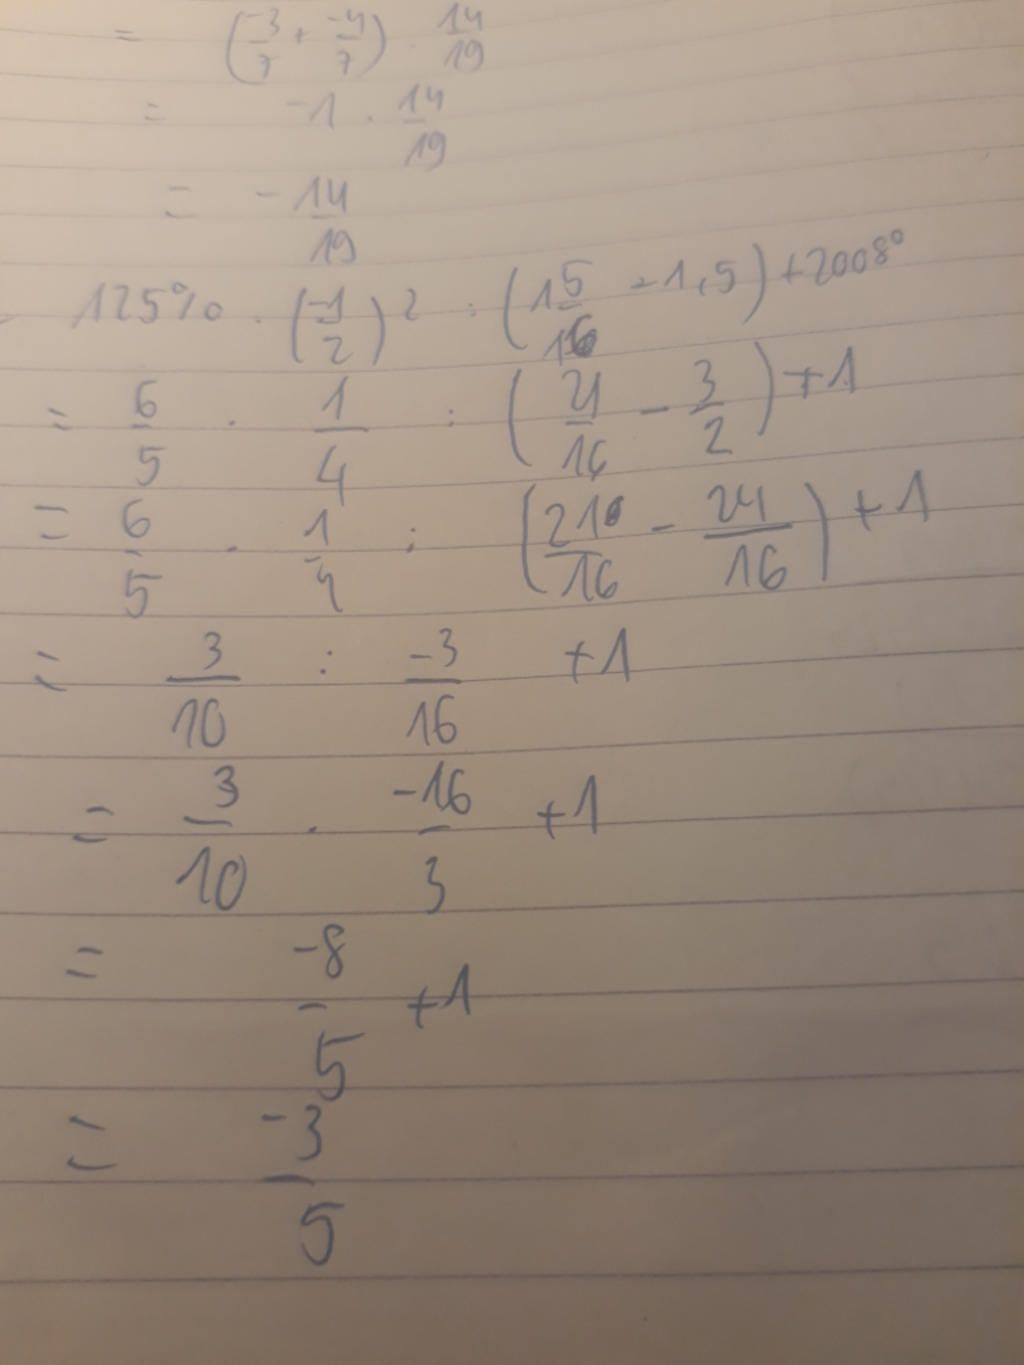 = (-3/7 + -4/7) · 14/19
= -1 · 14/19
= -14/19
125% · (-1/2)² : (1 5/16 - 1,5) + 2008⁰
= 6/5 · 1/4 : (21/16 - 3/2) + 1
= 6/5 · 1/4 : (21/16 - 24/16) + 1
= 3/10 : -3/16 + 1
= 3/10 · -16/3 + 1
= -8/5 + 1
= -3/5